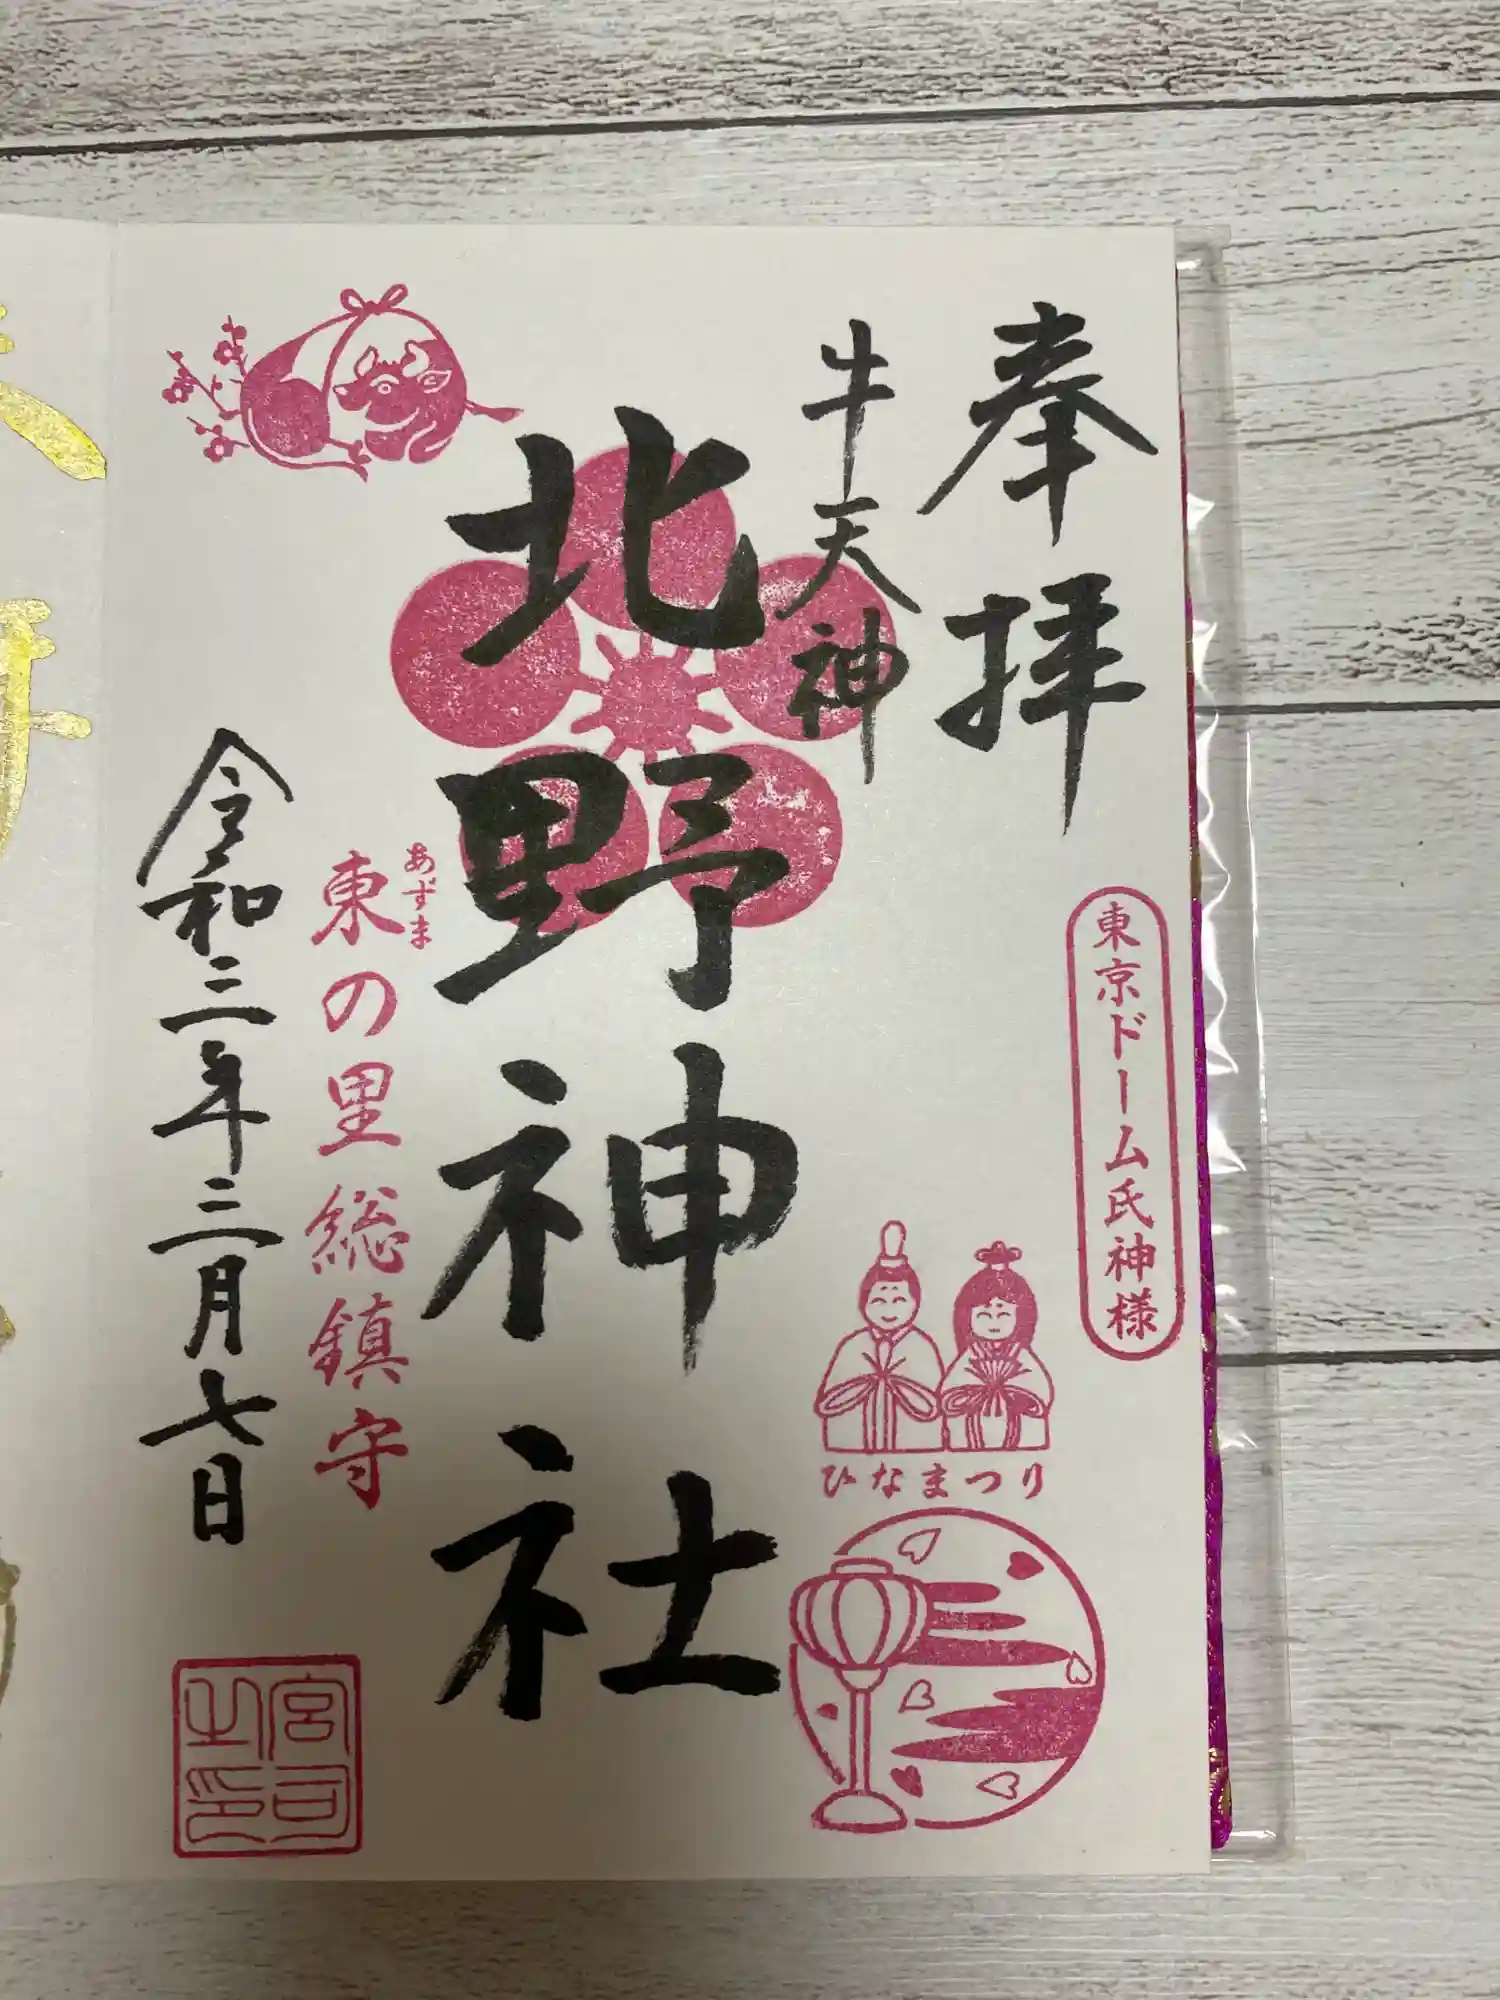 奉拝
東京ドーム氏神様
牛天神
北野神社
ひなまつり
あずま
東の里総鎮守
令和三年三月七日
宮司之印